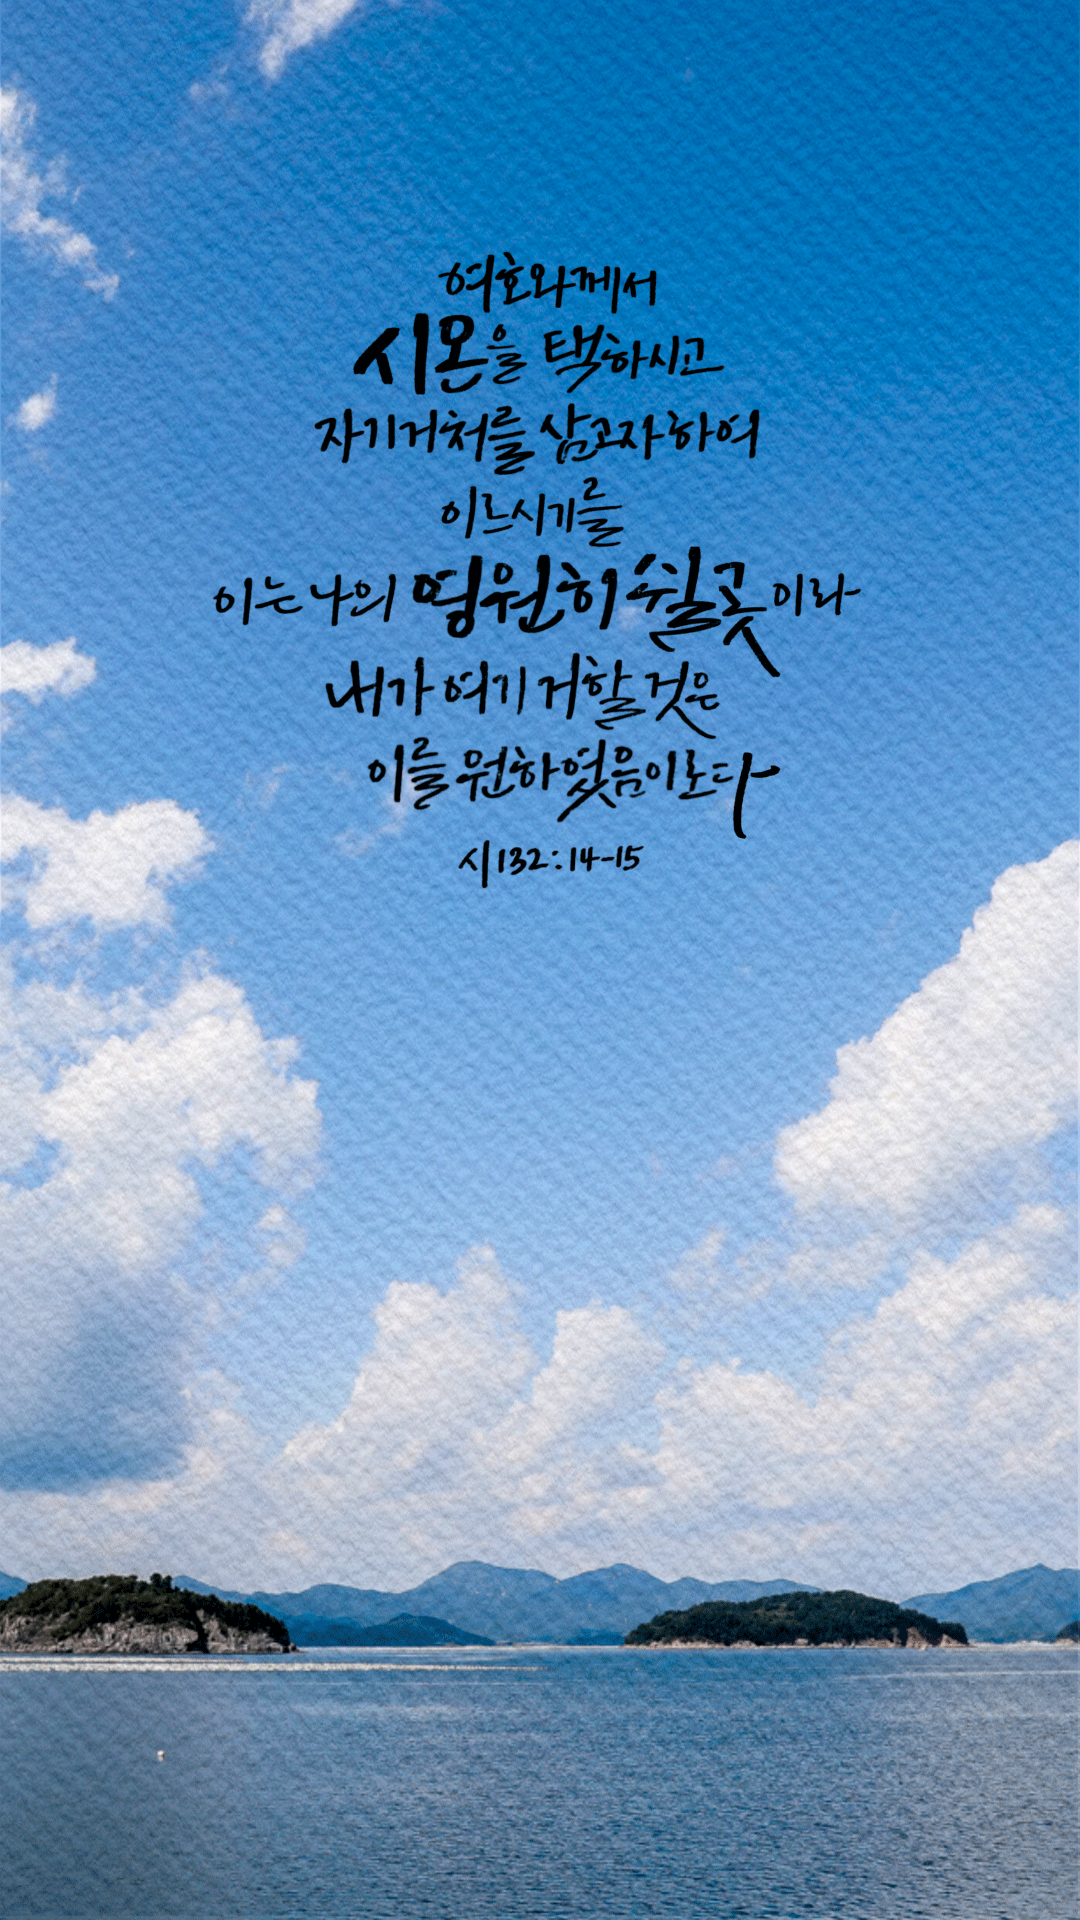 여호와께서
시온을 택하시고
자기거처를 삼고자하여
이르시기를
이는 나의 영원히 쉴곳이라
내가 여기 거할것은
이를 원하였음이로다
시132:14-15